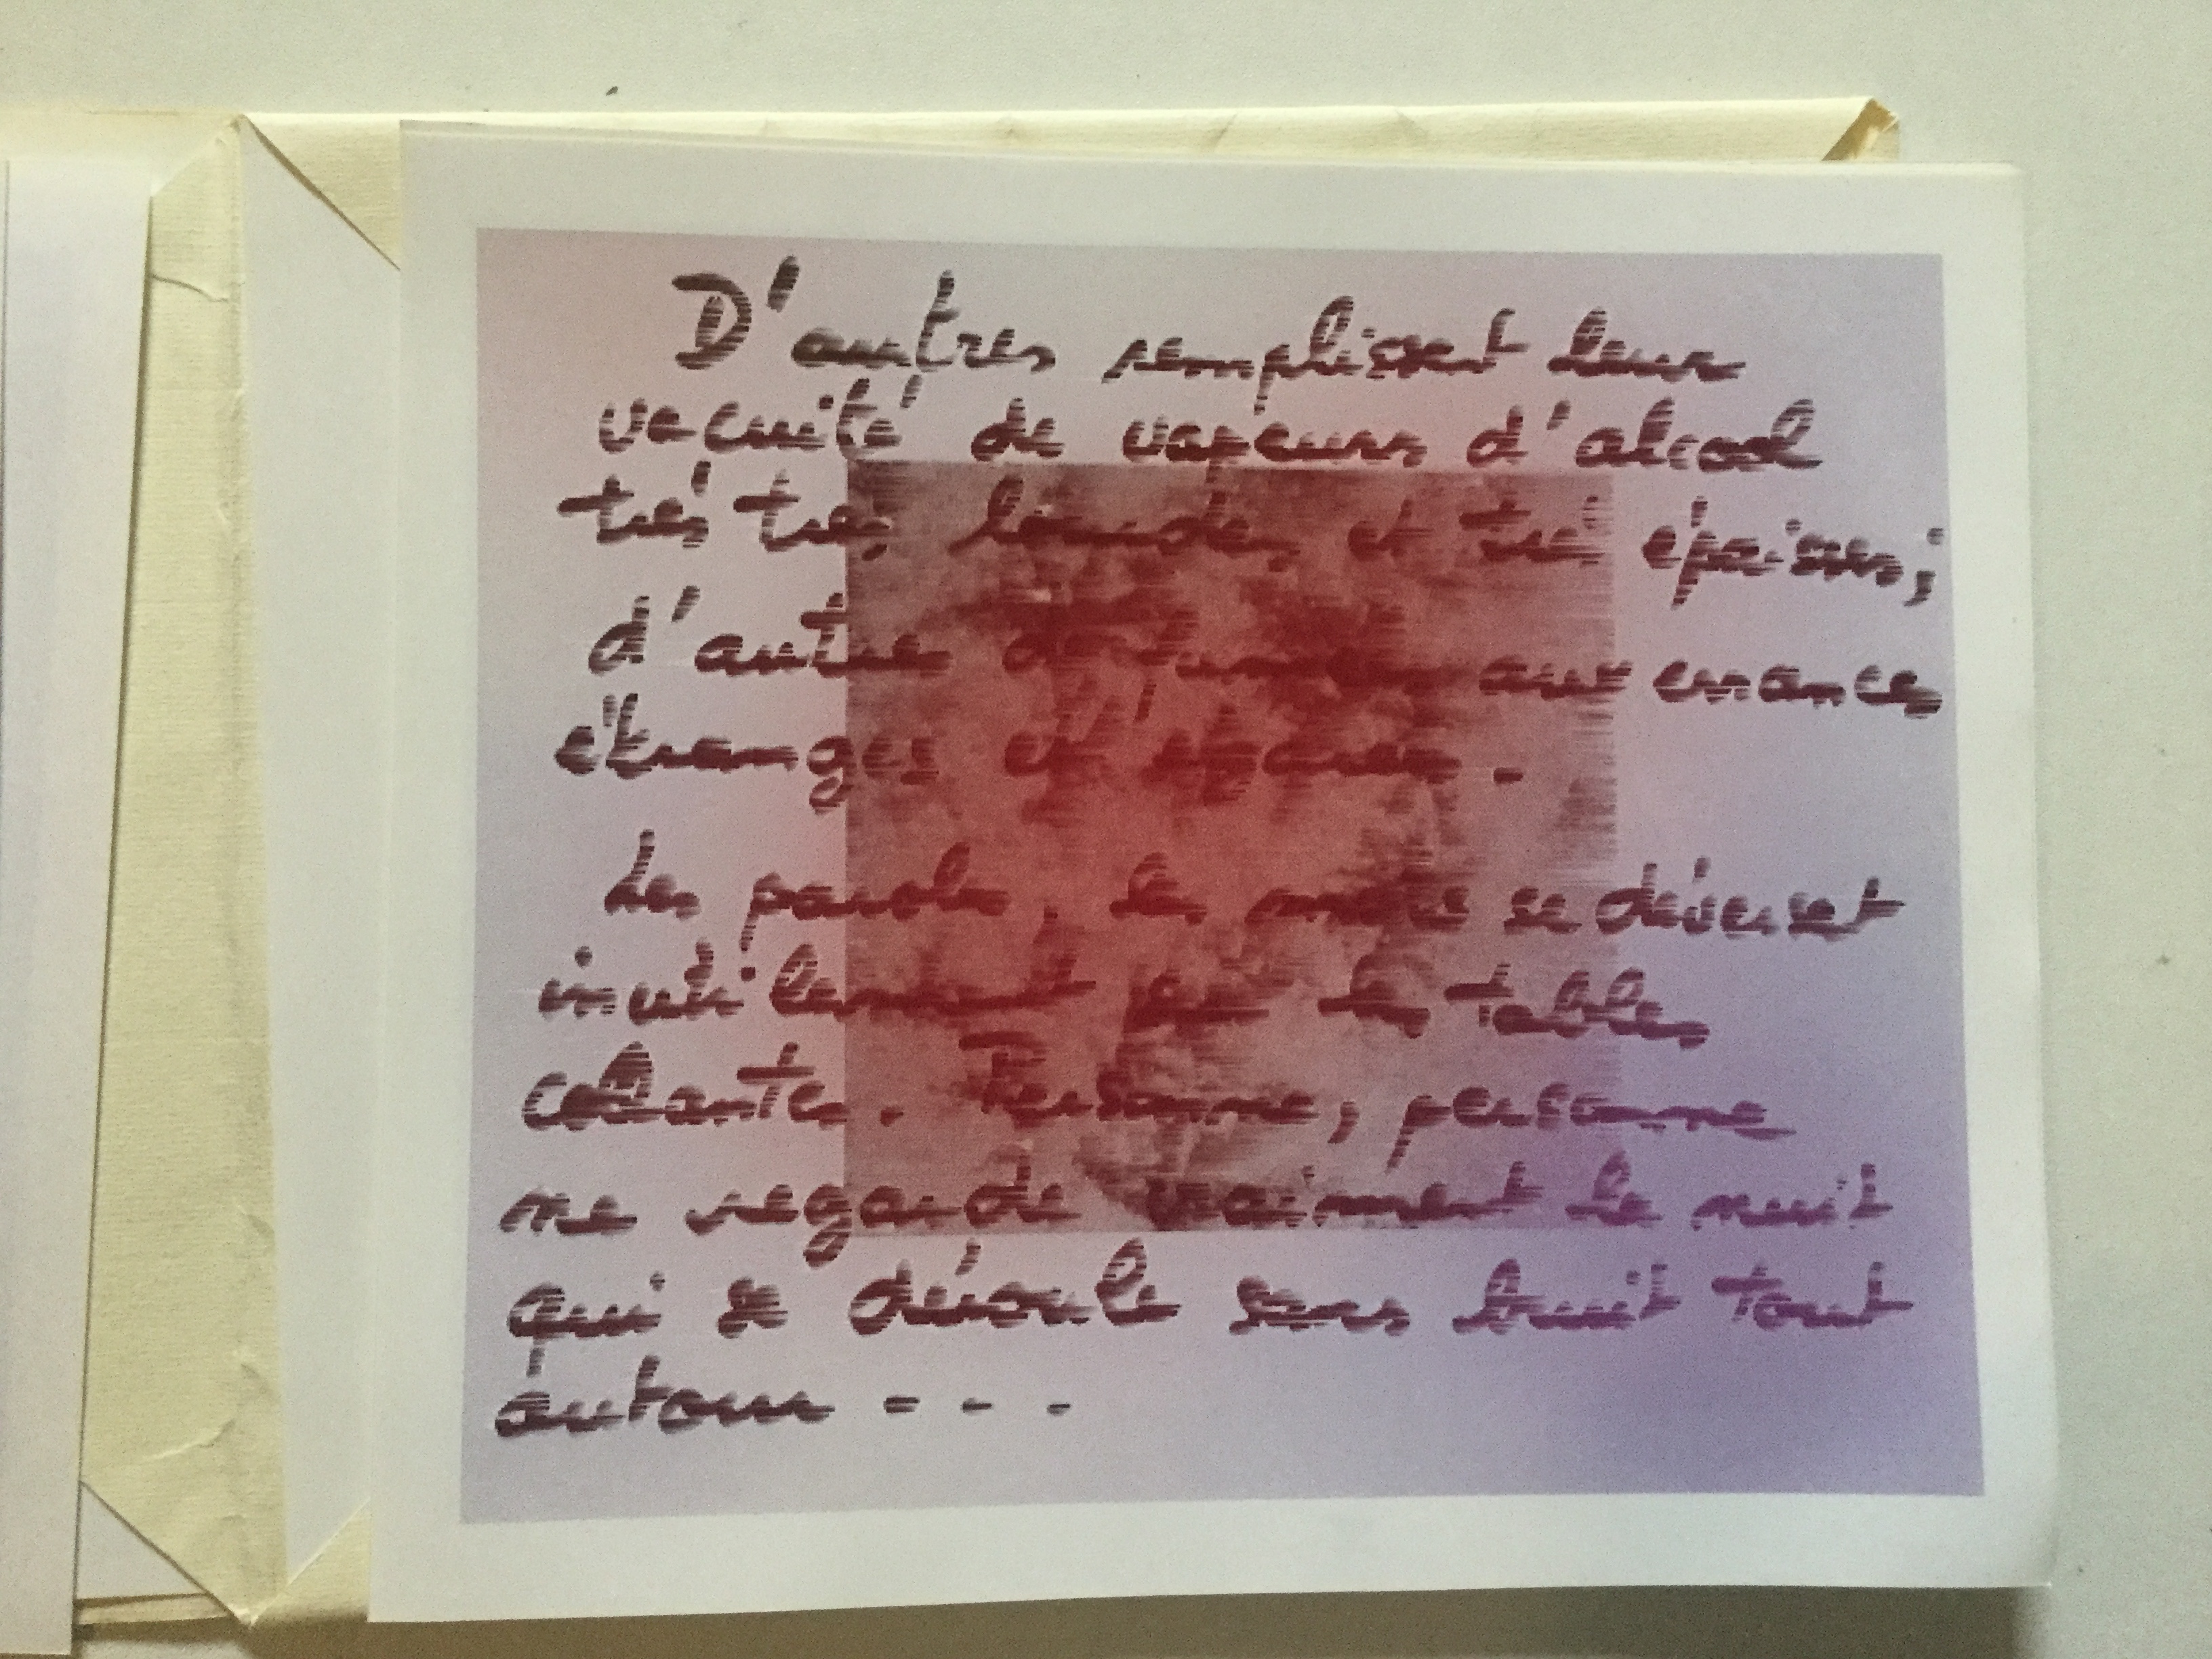 D'autres remplissent leur
vacuité de vapeurs d'alcool
très très lourdes et très épaisses;
d'autres de fumées aux errances
étranges et opaques.
Les paroles, les mots se déversent
inutilement sur les tables
collantes. Personne, personne
ne regarde vraiment la nuit
qui se déroule sans bruit tout
autour...